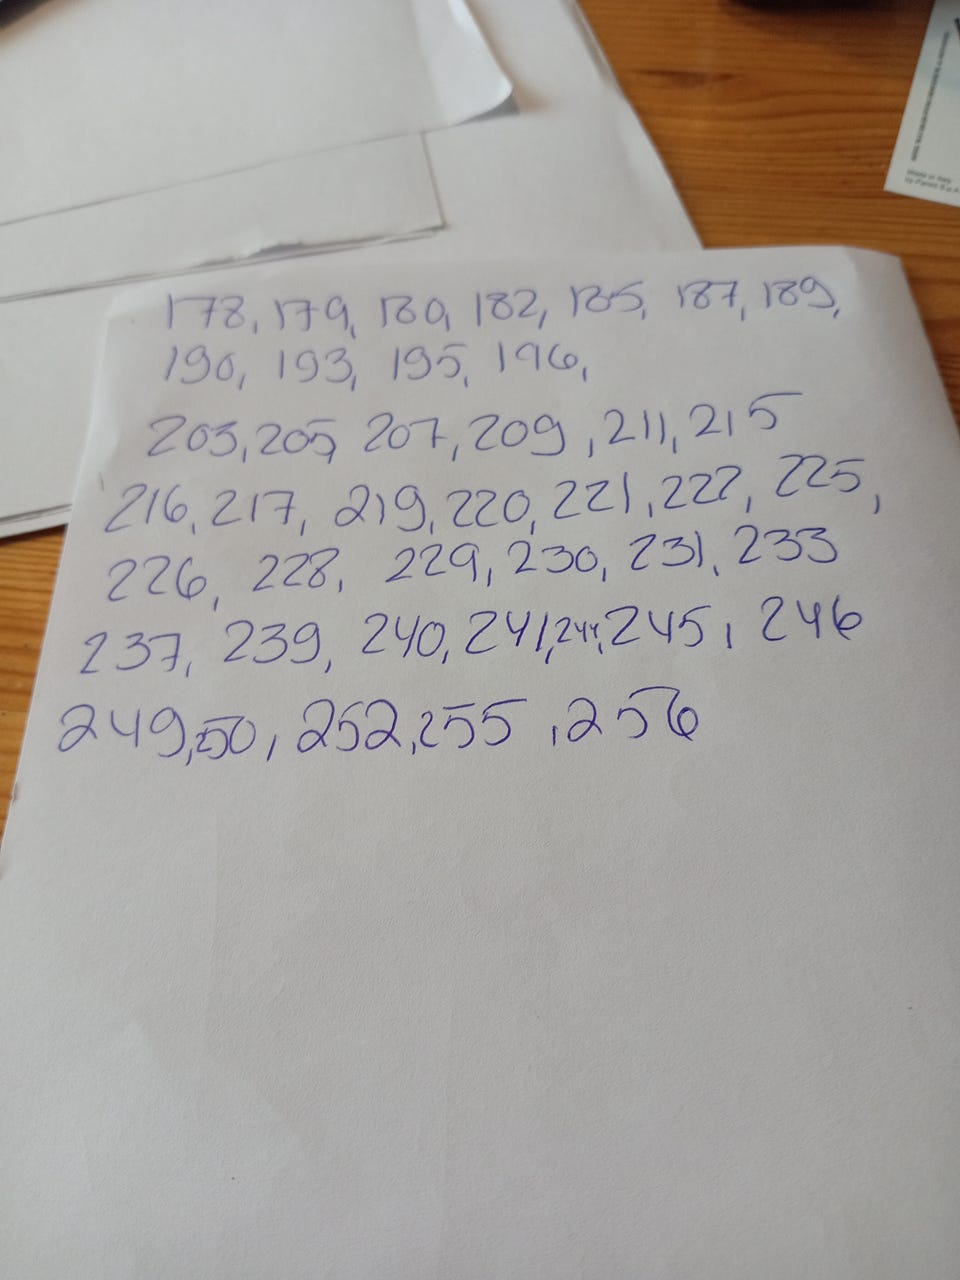 178, 179, 180, 182, 185, 187, 189,
190, 193, 195, 196,
203, 205, 207, 209, 211, 215
216, 217, 219, 220, 221, 222, 225,
226, 228, 229, 230, 231, 233
237, 239, 240, 241, 244, 245, 246
249, 50, 252, 255, 256
Made in Italy
by Panini S.p.A